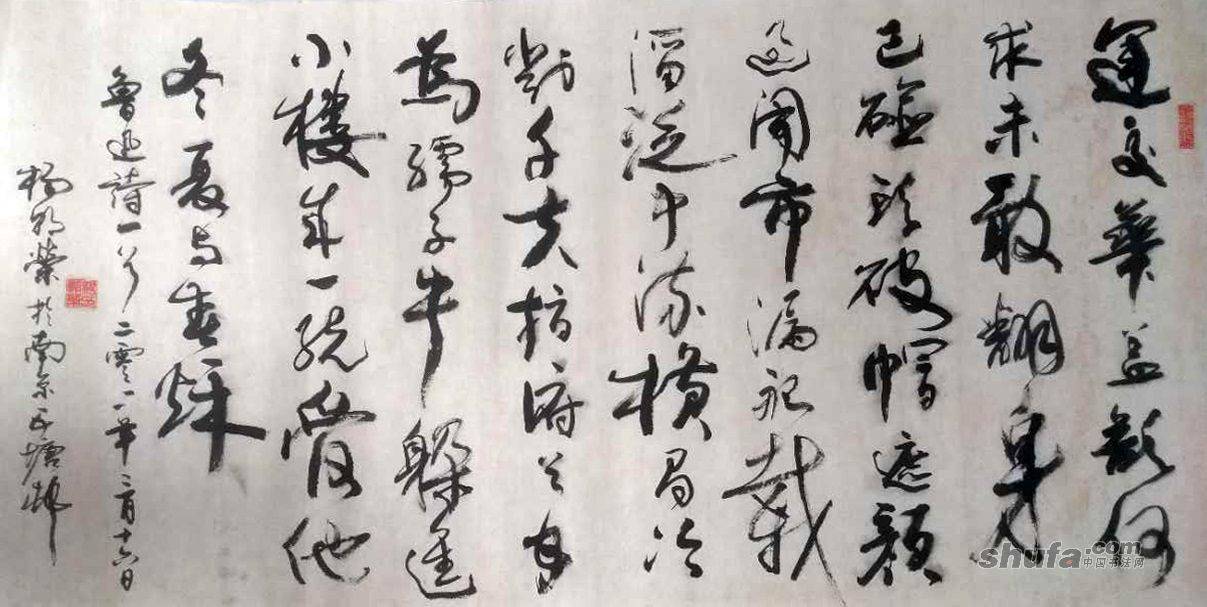 運交華蓋欲何
求未敢翻身
已碰頭破帽遮顏
過鬧市漏船載
酒泛中流橫眉冷
對千夫指俯首甘
為孺子牛躲進
小樓成一統管他
冬夏与春秋
魯迅詩一首 二零一一年二月十六日
楊 榮於南京 塘村
shufa.com
中国书法网